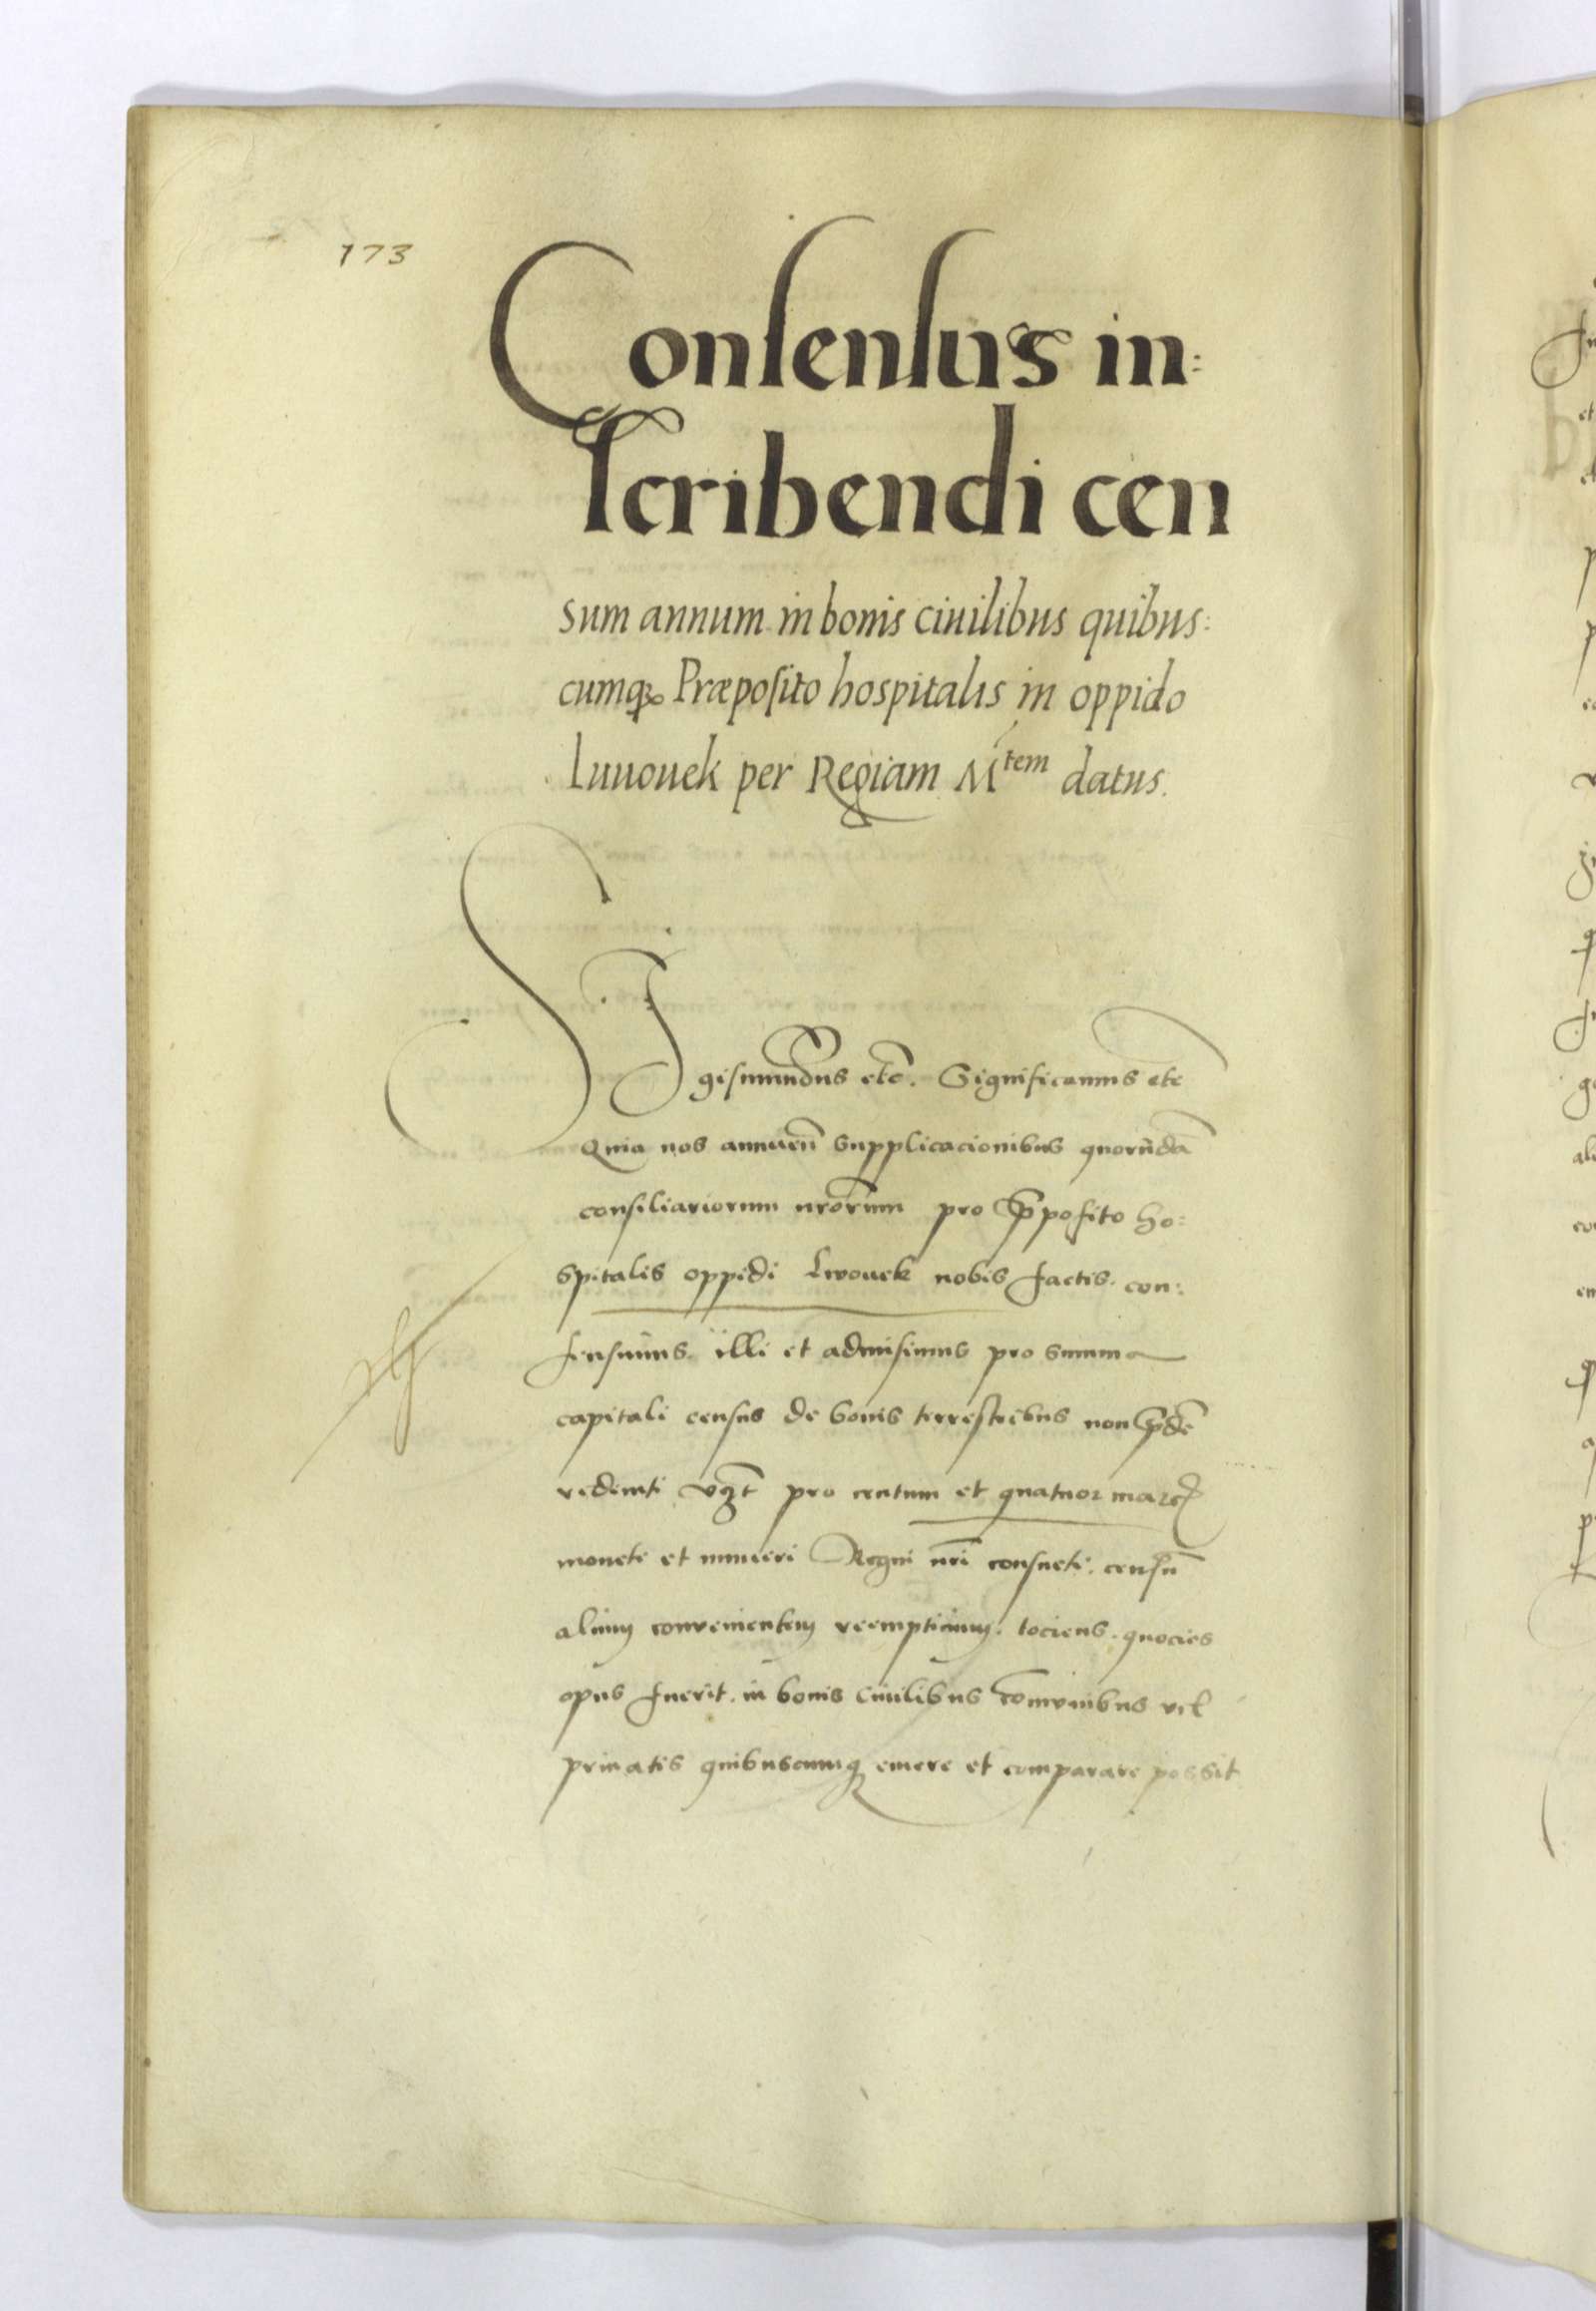 173
Consensus in:
scribendi cen
sum annum in bonis ciuilibus quibus:
cumq; Præposito hospitalis in oppido
Luuouek per Regiam M^tem datus.
SIgismundus etc̄. Significamus etc
Quia nos annuen̄ supplicacionibus quorūdā
consiliariorum nrōrum pro p̄posito ho:
spitalis oppidi Lwouek nobis factis. con:
sensimus. illi et admisimus pro summa
capitali census de bonis terrestribus non p̄dē
redempti vʒt pro centum et quatuor marc̄
monete et numeri Regni nrī consueti. censū
alium conuenientem reempticium. tociens. quocies
opus fuerit. in bonis ciuilibus com̄unibus vel
priuatis quibuscumq; emere et comparare possit